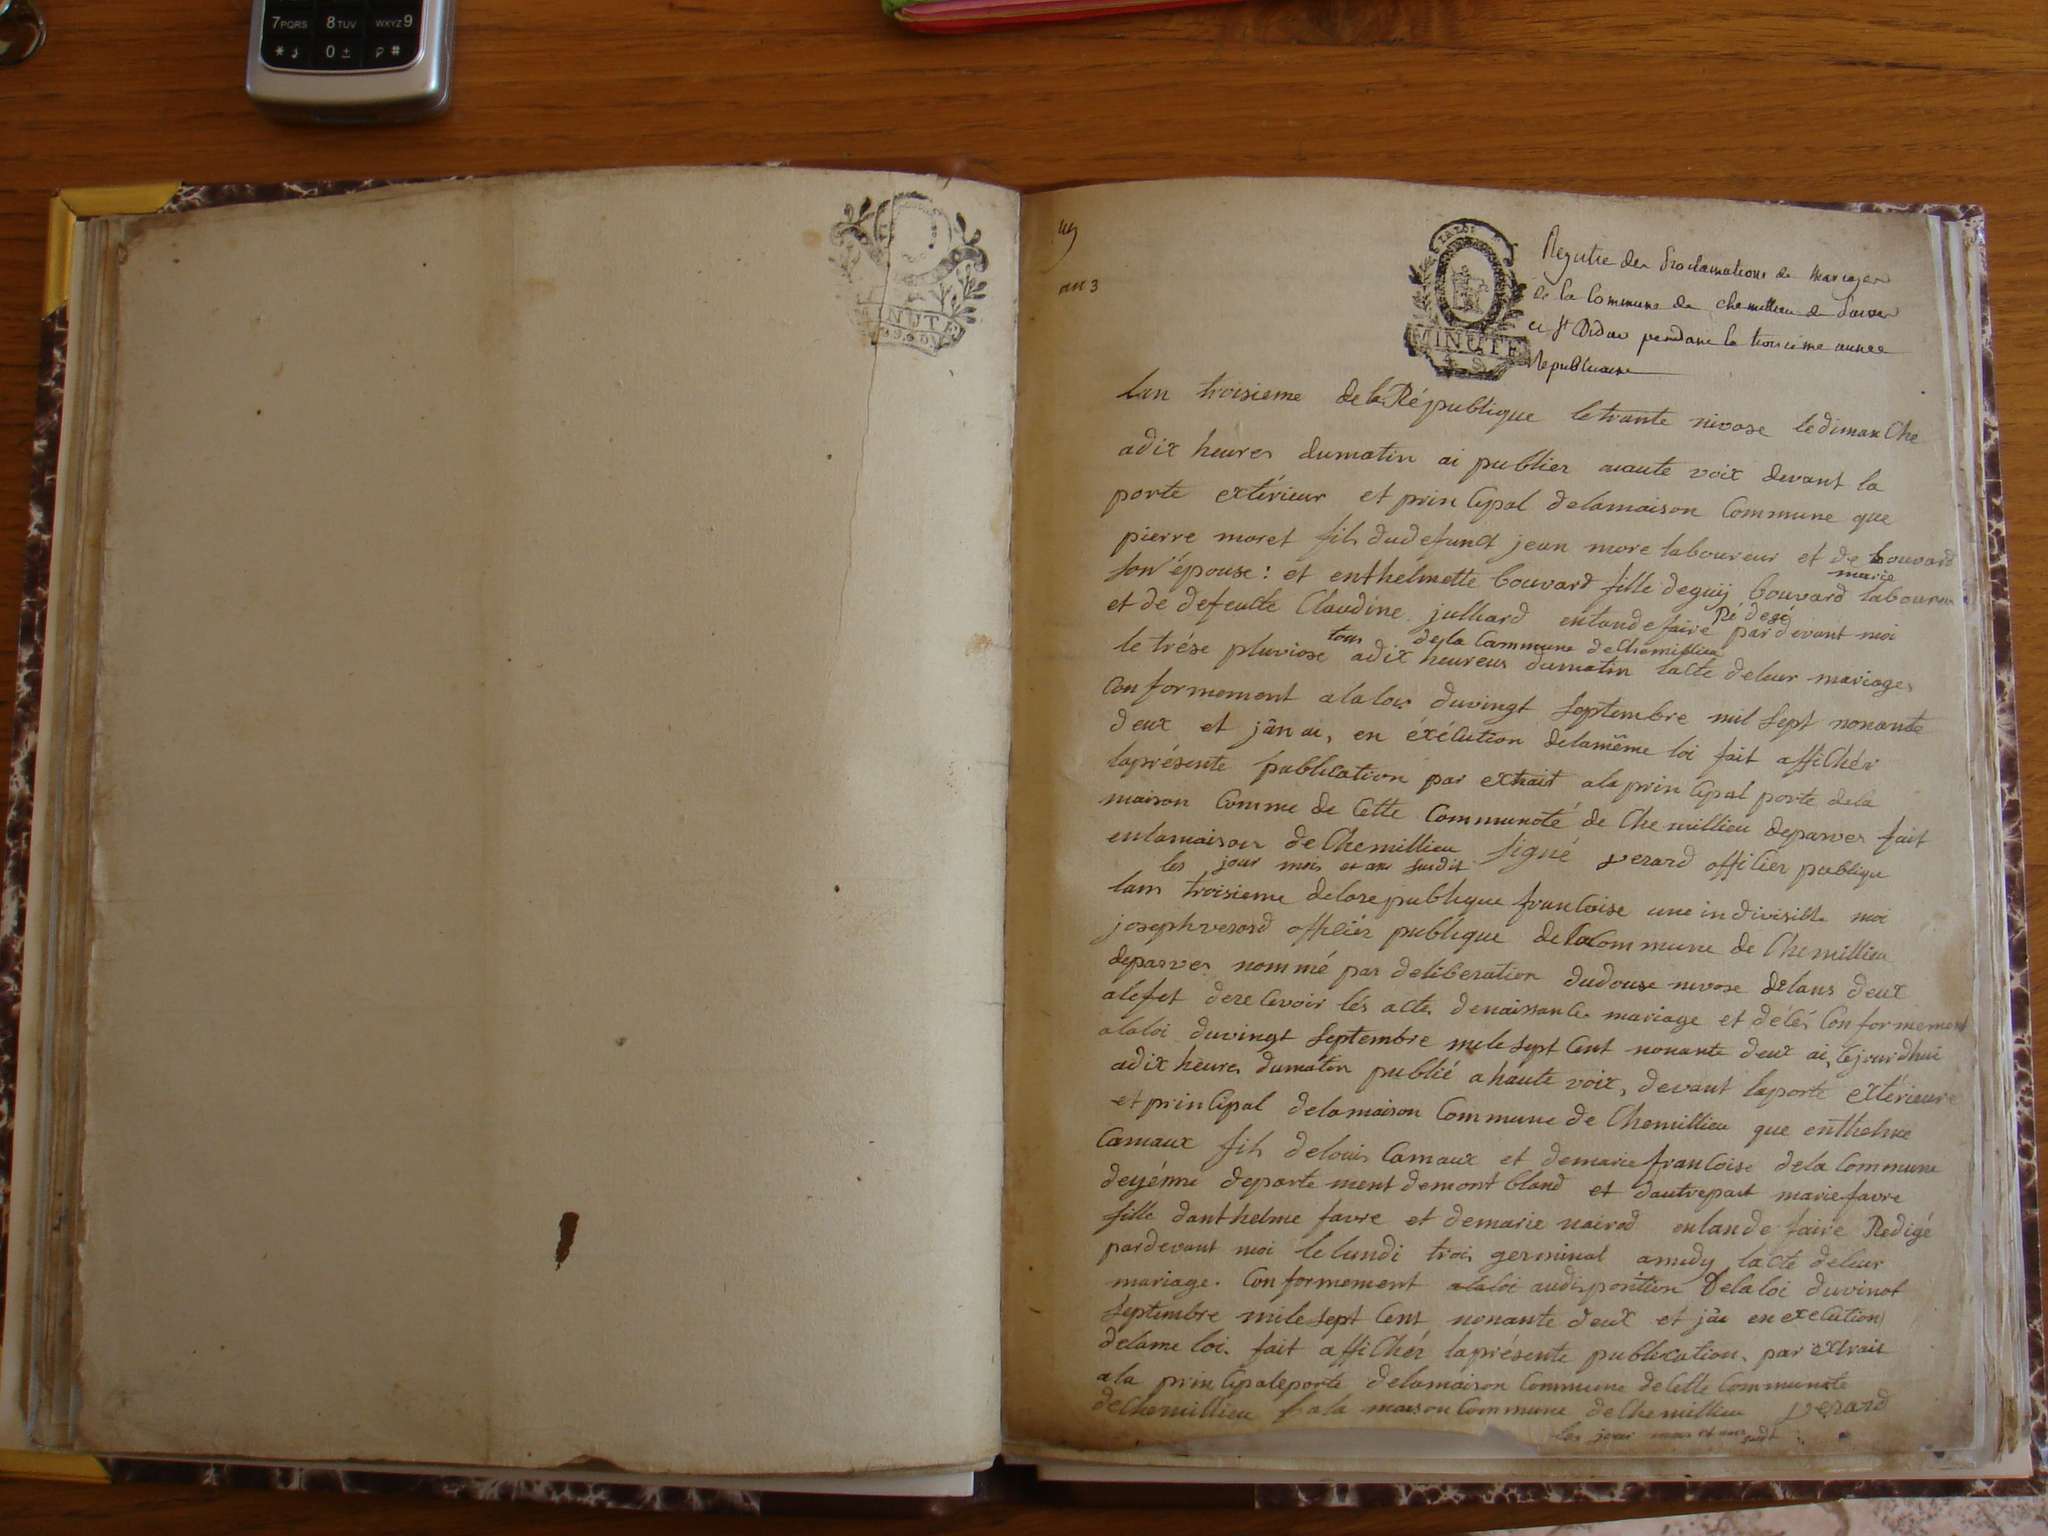 7PQRS 8TUV WXYZ9
* 0 ± #
MINUTE
an 3
LA LOI
MINUTE
4 S
Registre des Proclamations de mariages
de la Commune de chemillieu de Parves
et St Didac pendant la troisieme année
Republicaine
lan troisieme de la République le trante nivose le dimanChe
a dix heures dumatin ai publier a aute voix devant la
porte extérieur et prinCipal delamaison Commune que
pierre moret fils dudefunct jean more laboureur et de bouvard
son épouse : et enthelmette bouvard fille deguij bouvard laboureur
marie
et de defeucte Claudine julliard entandefaire Rédegé pardevant moi
le trése pluviose tous de la Commune de Chemillieu adix heureus dumatin lacte deleur mariages
Conformement alaloix duvingt septembre mil sept nonante
deux et jân ai, en éxéCution delamême loi fait affiChér
laprésente publication par extrait ala prinCipal porte dela
maison Comme de Cette Communoté de Chemillieu deparves fait
enlamaison de Chemillieu signé verard offiCier publique
les jour mois et an susdit
lans troisieme delarepublique franCoise une indivisille moi
joseph verard offiCiér publique de laCommune de Chemillieu
deparves nommé par deliberation dudouse nivose de lans deux
aléfet dereCevoir lés actes denaissanCe mariage et déCés Conformement
alaloi duvingt septembre mile sept Cent nonante deux ai, Cejourdhui
adix heures dumaten publié a haute voix, devant laporte extérieure
et prinCipal delamaison Commune de Chemillieu que enthelme
Camaux fils delouis Camaux et demarie franCoise dela Commune
deyénne departement demont bland et dautrepart marie favre
fille danthelme favre et demarie nairod entande faire Redigé
pardevant moi le lundi trois germinal amidy lacte deleur
mariage. Conformement alaloi audispontion dela loi duvinot
septembre mile sept Cent nonante deux et jâi en exeCution
delame loi. fait affiChér laprésente publication. par extrait
ala prinCipaleporte delamaison Commune deCette Communoté
deChemillieu f ala maison Commune deChemillieu verard
les jour mois et ans susdit